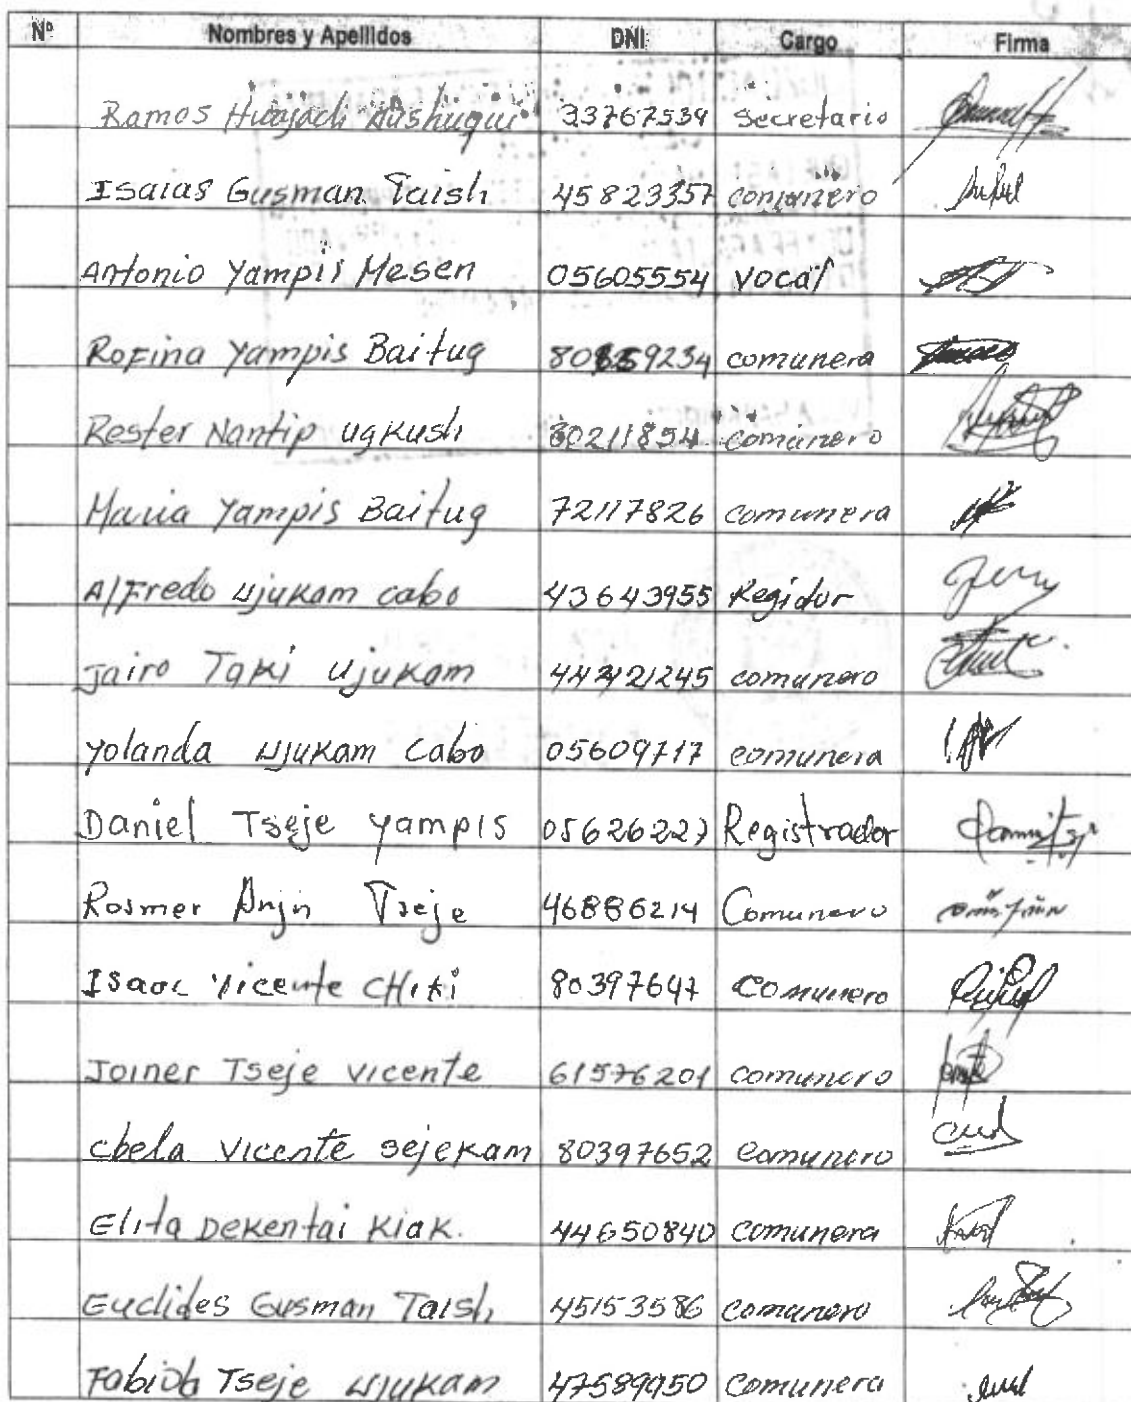 Nº Nombres y Apellidos DNI Cargo Firma
Ramos 33767539 Secretario
Isaias Gusman Taish 45823357 comunero
Antonio Yampis Mesen 05605554 vocal
Rofina Yampis Baitug comunera
Rester Nantip ugkush 80211854 comunero
Maria Yampis Baitug 72117826 comunera
Alfredo ujukam cabo 43643955 Regidor
Jairo Taki ujukam comunero
Yolanda ujukam Cabo 05609717 comunera
Daniel Tseje yampis 05626227 Registrador
Rosmer Tseje 46886214 Comunero
Isaac Vicente CHiki 80397647 comunero
Joiner Tseje vicente 61576201 comunero
chela vicente sejekam 80397652 comunero
Elita Dekentai Kiak. 44650840 comunera
Euclides Gusman Taish 45153586 comunero
Fabiola Tseje ujukam 47589950 comunera